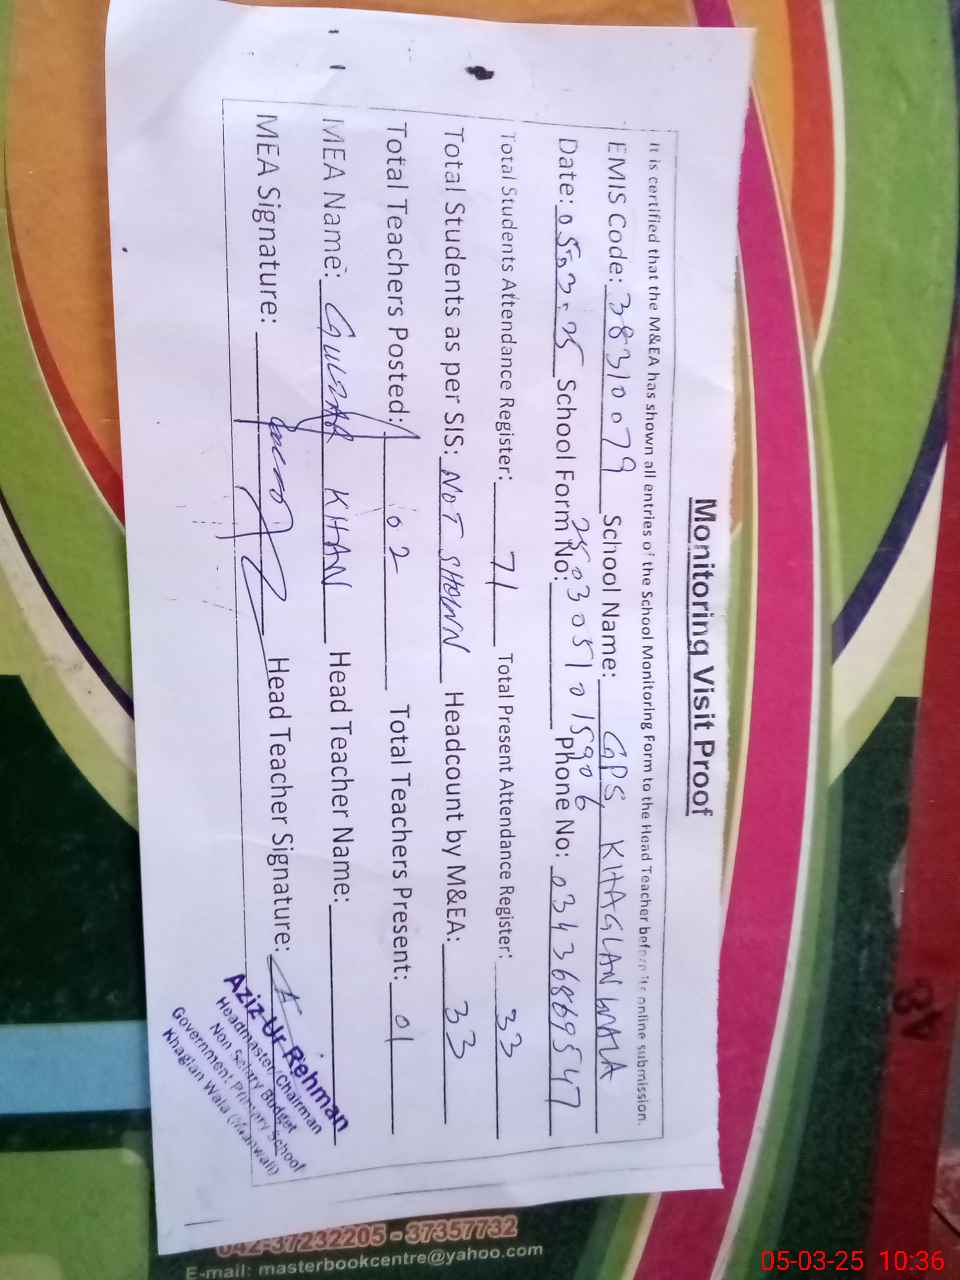 Monitoring Visit Proof
It is certified that the M&EA has shown all entries of the School Monitoring Form to the Head Teacher before its online submission.
EMIS Code: 38310079 School Name: GPS, KHAGLAN WALA
Date: 05.03.25 School Form No: 2503051015906 Phone No: 03436869547
Total Students Attendance Register: 71 Total Present Attendance Register: 33
Total Students as per SIS: NOT SHOWN Headcount by M&EA: 33
Total Teachers Posted: 02 Total Teachers Present: 01
MEA Name: GULZAR KHAN Head Teacher Name:
MEA Signature: Head Teacher Signature:
Aziz Ur Rehman
Headmaster/Chairman
Non Salary Budget
Government Primary School
Khaglan Wala (Mianwali)
042-37232205 - 37357732
E-mail: masterbookcentre@yahoo.com
05-03-25 10:36